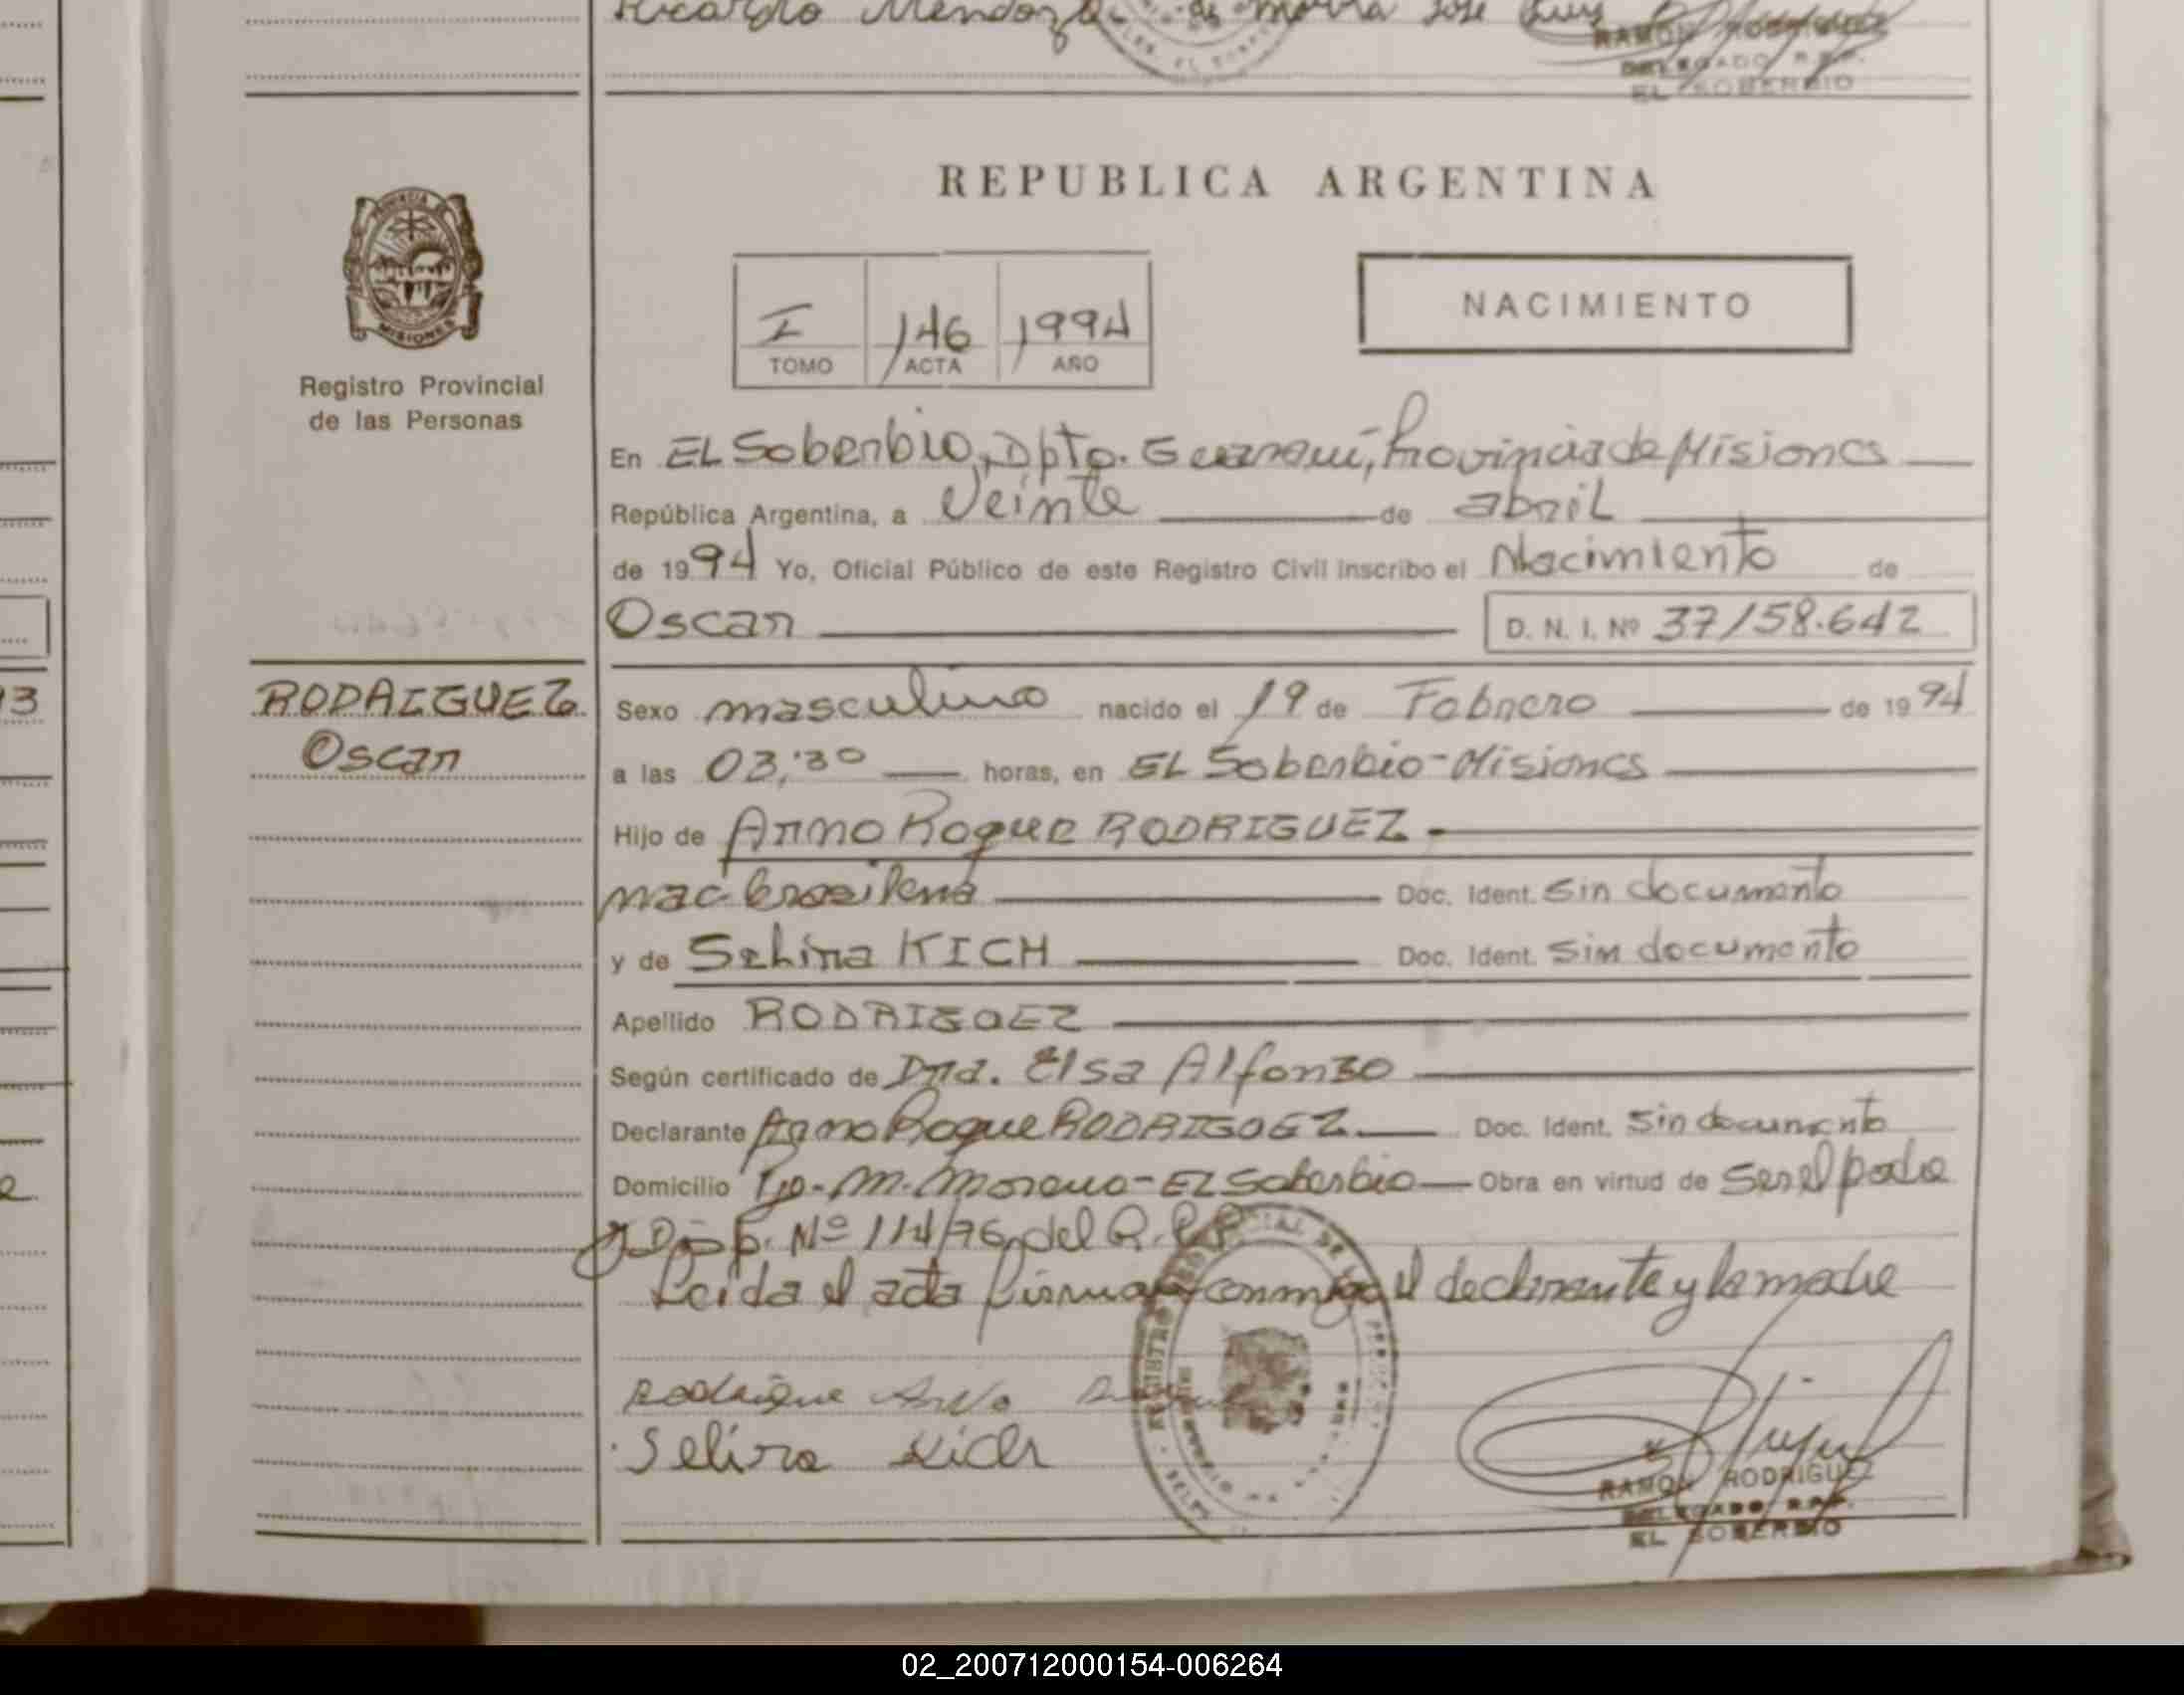 Ricardo Mendoza
RAMON RODRIGUEZ
DELEGADO R.P.P.
EL SOBERBIO
PROVINCIA DE
MISIONES
Registro Provincial
de las Personas
REPUBLICA ARGENTINA
I 146 1994
TOMO ACTA AÑO
NACIMIENTO
En EL Soberbio, Dpto. Guaraní, Provincia de Misiones
República Argentina, a Veinte de abril
de 1994 Yo, Oficial Público de este Registro Civil inscribo el Nacimiento de
Oscar D. N. I. Nº 37158.642
13
RODRIGUEZ
Oscar
Sexo masculino nacido el 19 de Febrero de 1994
a las 03,30 horas, en EL Soberbio-Misiones
Hijo de Arno Roque RODRIGUEZ
nac. brasilena Doc. Ident. Sin documento
y de Selira KICH Doc. Ident. Sin documento
Apellido RODRIGUEZ
Según certificado de Dña. Elsa Alfonzo
Declarante Arno Roque RODRIGUEZ Doc. Ident. Sin documento
Domicilio M. Moreno - EL Soberbio Obra en virtud de Ser el padre
y Disp. Nº 114/76 del R.P.P.
Leida el acta firman conmigo el declarante y la madre
Rodrigue Arno
Selira Kich
RAMON RODRIGUEZ
DELEGADO R.P.P.
EL SOBERBIO
02_200712000154-006264